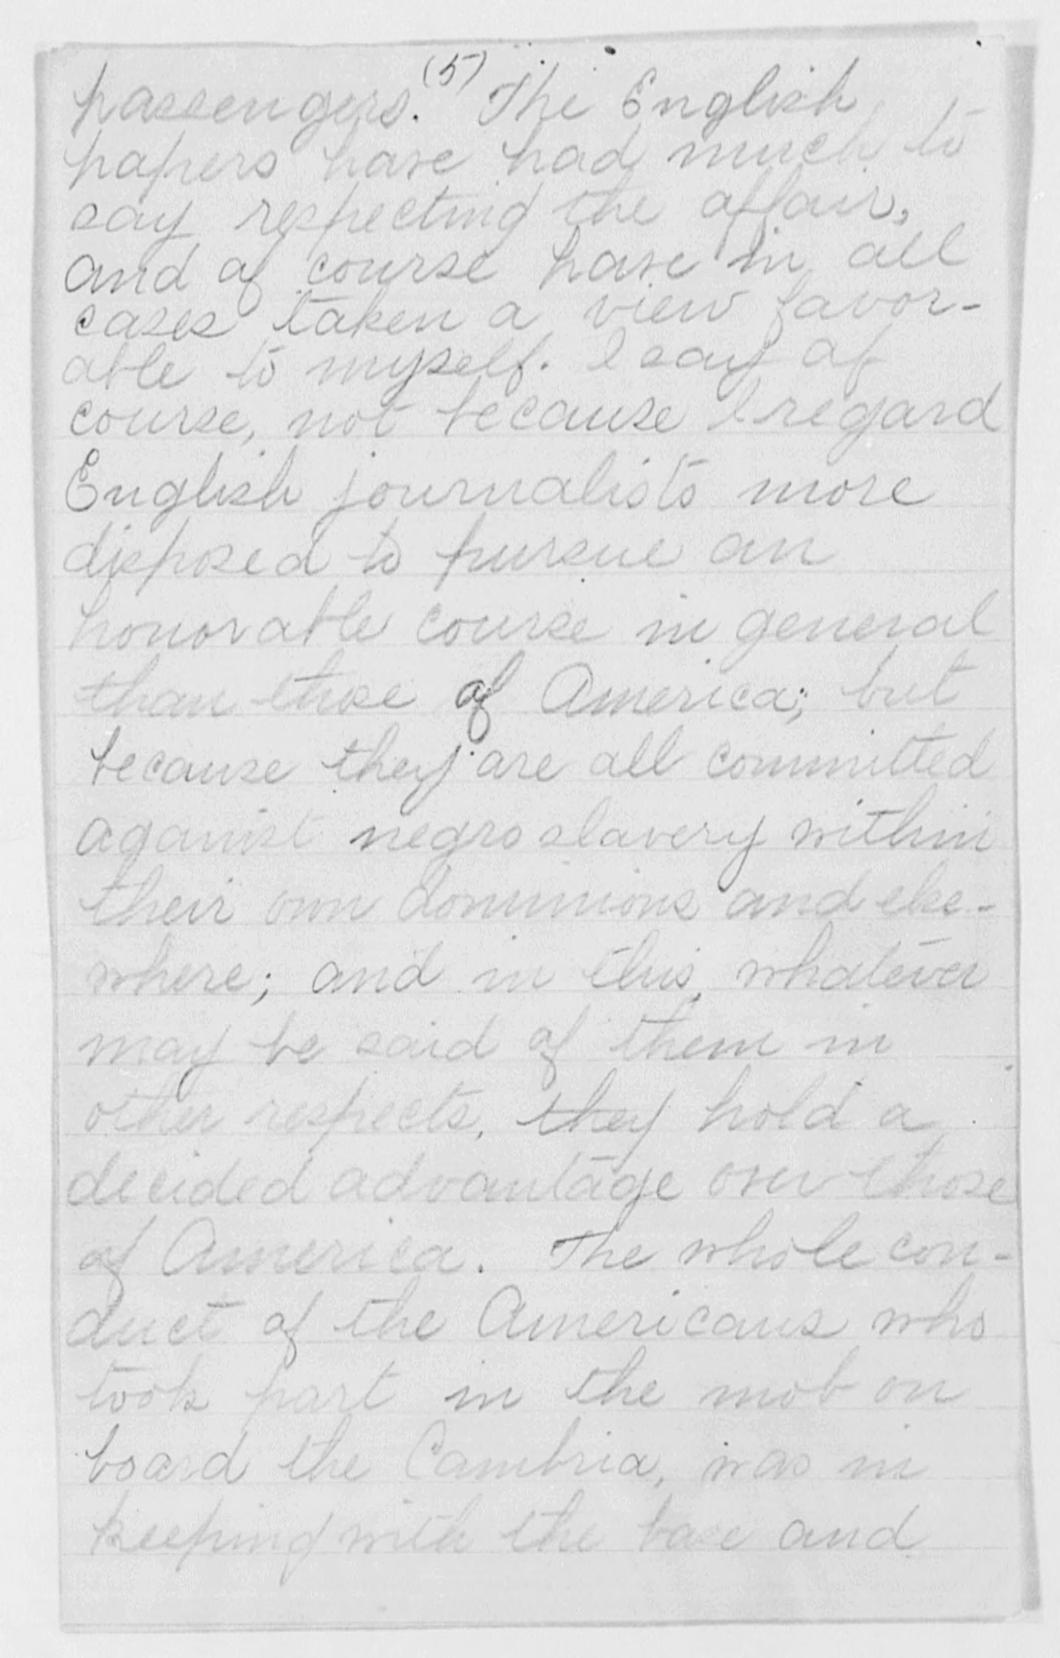 (5)
passengers. The English
papers have had much to
say respecting the affair,
and of course have in all
cases taken a view favor-
able to myself. I say of
course, not because I regard
English journalists more
disposed to pursue an
honorable course in general
than those of America; but
because they are all committed
against negro slavery within
their own dominions and else-
where; and in this, whatever
may be said of them in
other respects, they hold a
decided advantage over those
of America. The whole con-
duct of the Americans who
took part in the mob on
board the Cambria, was in
keeping with the base and